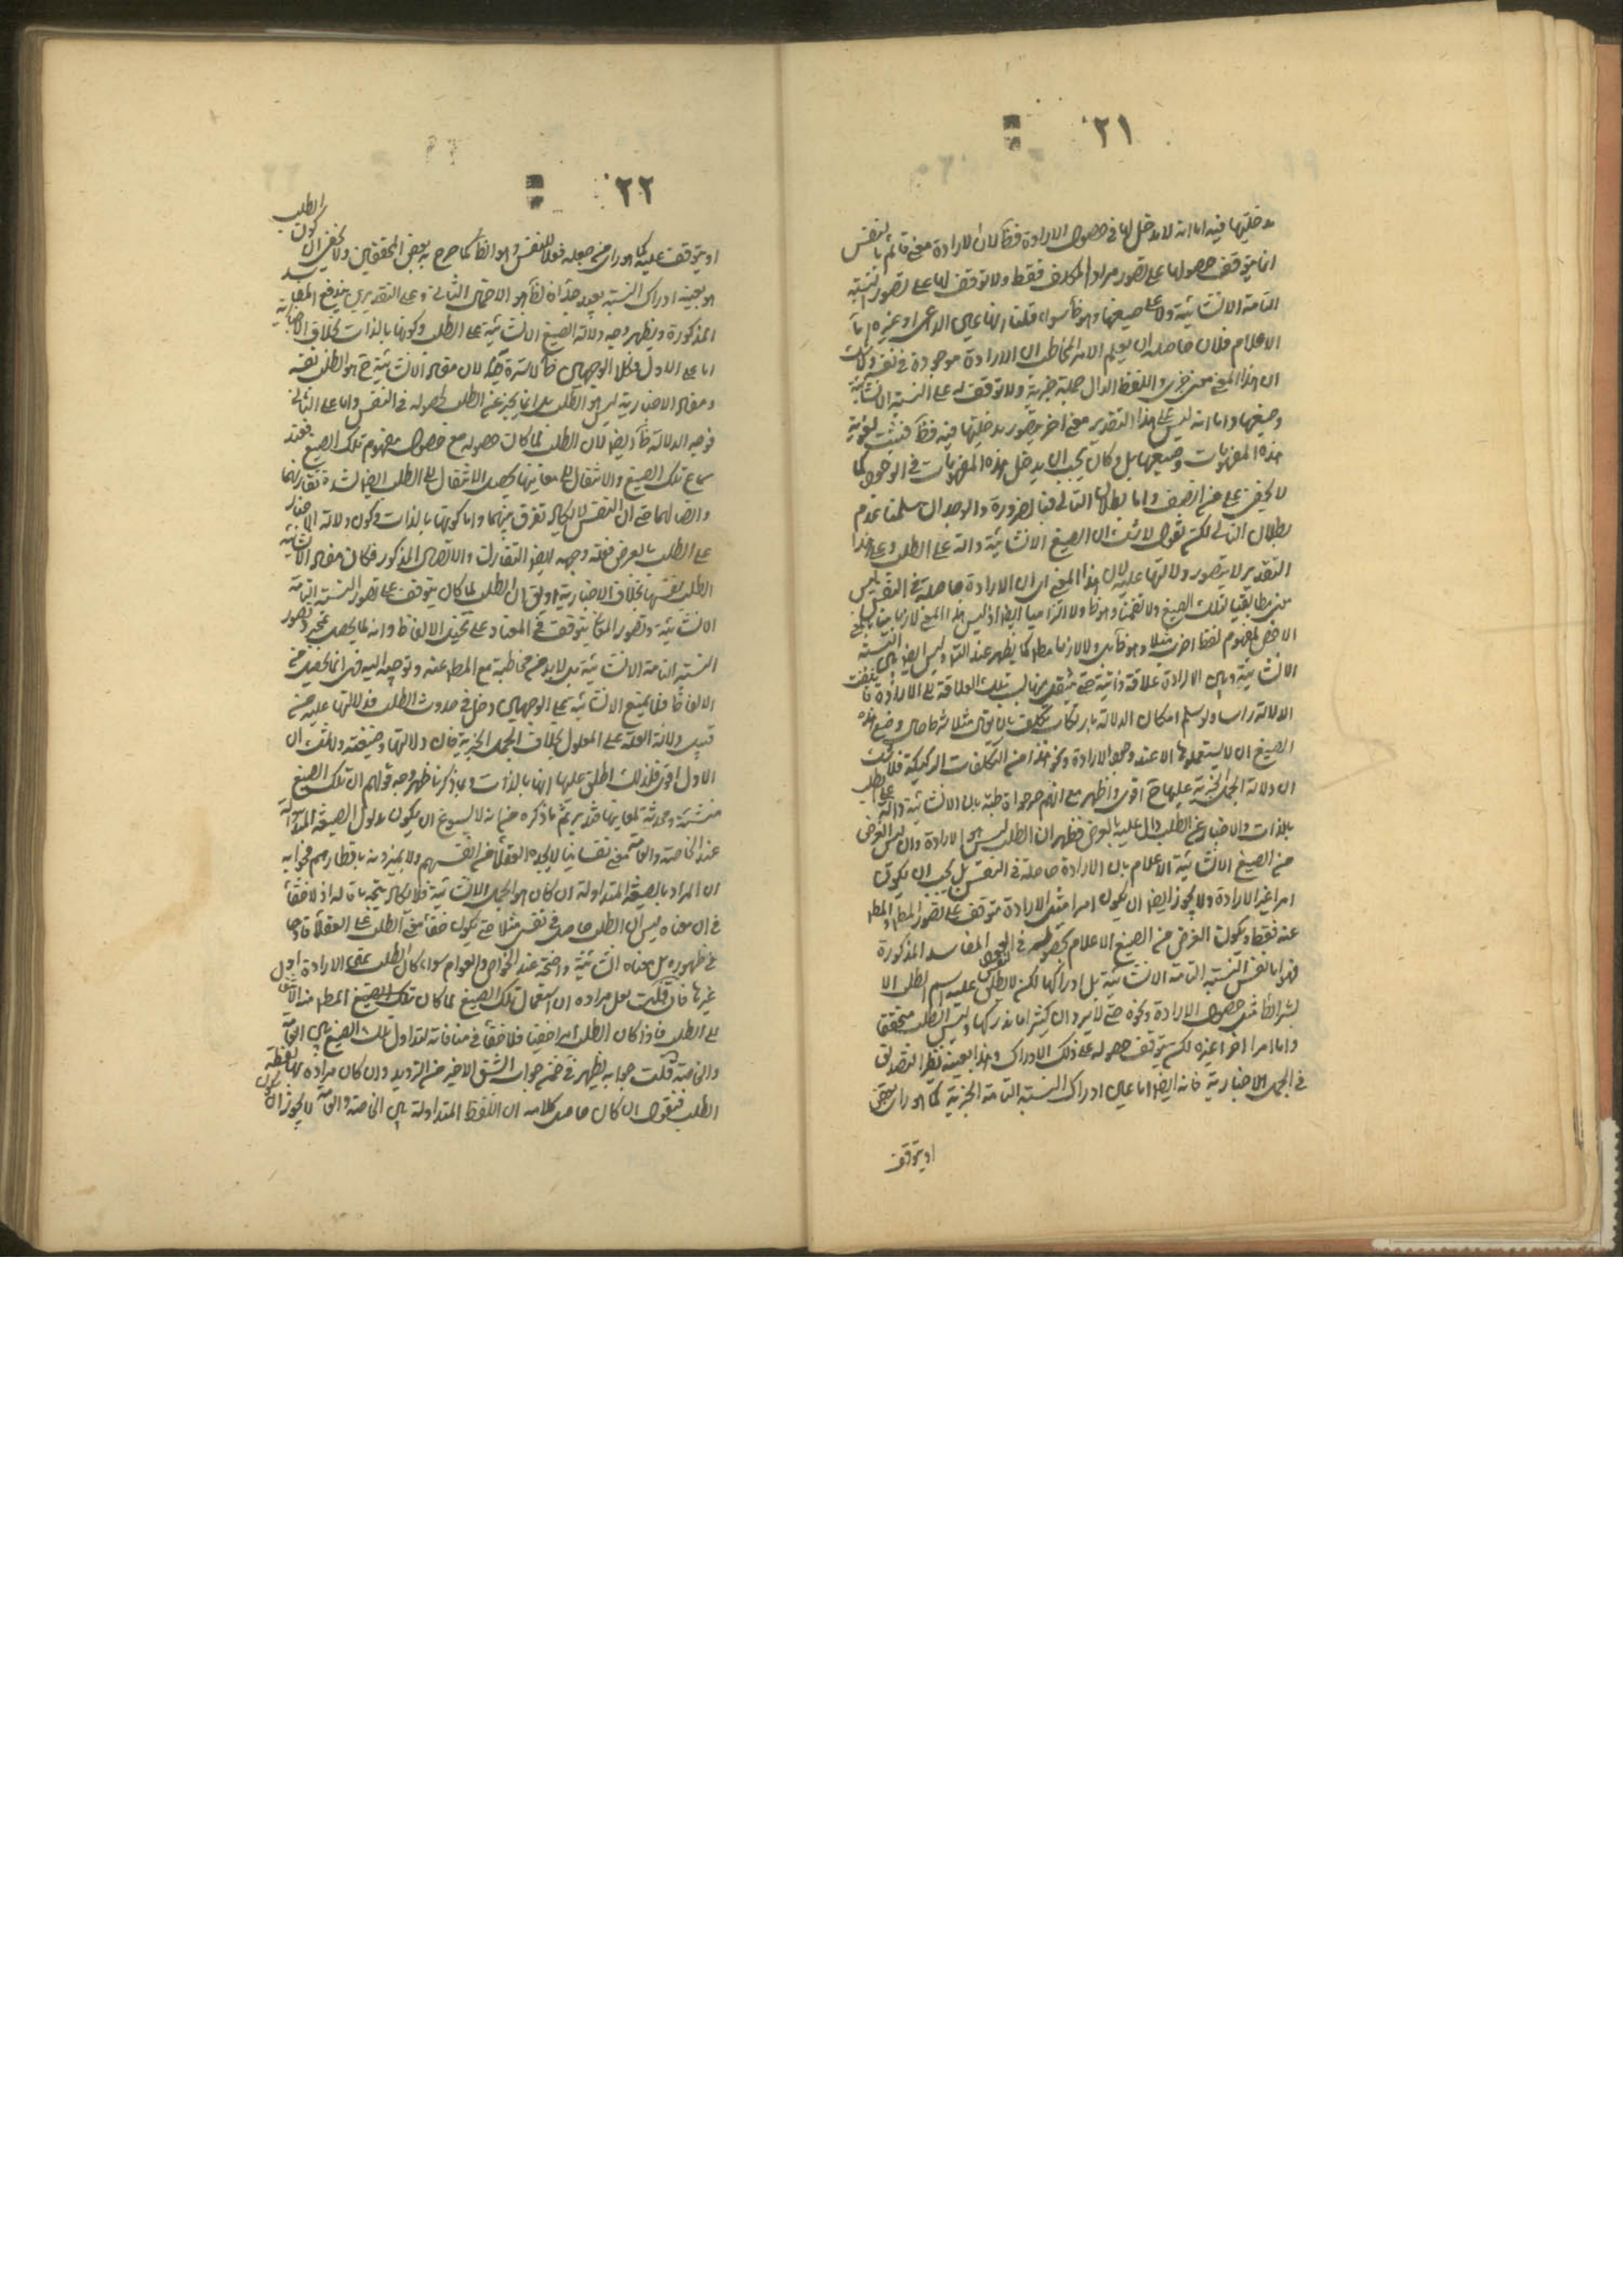 ٢١
مدخليتها فيه اما انه لا مدخل لها في حصول الارادة فظ لان الارادة معنى قائم بالنفس
انما يتوقف حصولها على تصور مراد المتكلم فقط ولا توقف لها على تصور النسبة
التامة الانشائية ولا على صيغها وهو ظ سواء قلنا انها عين الداعى او غيره واما
الاعلام فلان حاصله ان يعلم الامر المخاطب ان الارادة موجودة في نفسه ولا شك
ان هذا المعنى معنى خبرى واللفظ الدال جملة خبرية ولا توقف له على النسبة الانشائية
وصيغها واما انه ليس على هذا التقدير معنى اخر يتصور مدخليتها فيه فظ فيثبت لغوية
هذه المفهومات وصيغها بل وكان يجب ان يدخل هذه المفهومات في الوجود كما
لا يخفى على من انصف واما بطلان التالى فبالضرورة والوجدان سلمنا عدم
بطلان التالى لكن نقول لا شك ان الصيغ الانشائية دالة على الطلب وعلى هذا
التقدير لا يتصور دلالتها عليه لان هذا المعنى اى ان الارادة حاصلة في النفس ليس
معنى مطابقيا لتلك الصيغ ولا تضمنا وهو ظ ولا التزاميا ايضا اذ ليس هذا المعنى لازما بينا بالمعنى
الاخص لمفهوم لفظ اضرب مثلا وهو ظ بل ولا لازما مطلقا كما يظهر عند التأمل وليس ايضا بين النسبة
الانشائية وبين الارادة علاقة ذاتية حتى ينتقل منها بسبب تلك العلاقة الى الارادة فانتفت
الدلالة راسا ولو سلم امكان الدلالة بارتكاب تكلف بان يقال مثلا شرط حين وضع هذه
الصيغ ان لا يستعملوها الا عند وجود الارادة ونحو هذا من التكلفات الركيكة فلا شك
ان دلالة الجمل الخبرية عليها ح اقوى واظهر مع انهم صرحوا قاطبة بان الانشائية دالة على الطلب
بالذات والاخبار عن الطلب دال عليه بالعرض فظهر ان الطلب ليس هو الارادة وان ليس الغرض
من الصيغ الانشائية الاعلام بان الارادة حاصلة في النفس بل يجب ان يكون
امرا غير الارادة ولا يجوز ايضا ان يكون امرا مثل الارادة متوقف على تصور المطلوب والمطلوب
عنه فقط ويكون الغرض من الصيغ الاعلام بحصوله في النفس لعود المفاسد المذكورة
فهو اما نفس النسبة التامة الانشائية بل ادراكها لكن لا يطلق عليه اسم الطلب الا
بشرائط مثل حصول الارادة ونحوه حتى لا يرد ان كثيرا ما ندركها وليس الطلب متحققا
واما امرا اخر غيره لكن يتوقف حصوله على ذلك الادراك وهذا بعينه نظير التصديق
في الجمل الاخبارية فانه ايضا اما عين ادراك النسبة التامة الخبرية كما هو راى بعض
او يتوقف
٢٢
او يتوقف عليه كما هو راى من جعله فعلا للنفس وهو الظ كما صرح به بعض المحققين ولا يخفى ان كون الطلب
هو بعينه ادراك النسبة بعيد جدا فالظ هو الاحتمال الثانى وعلى التقديرين يندفع المفاسد
المذكورة ويظهر وجه دلالة الصيغ الانشائية على الطلب وكونها بالذات بخلاف الاخبارية
اما على الاول فكلا الوجهين ظ لا سترة فيه لان مفاد الانشائية ح هو الطلب نفسه
ومفاد الاخبارية ليس هو الطلب بل انما يخبر عن الطلب بحصوله في النفس واما على الثانى
فوجه الدلالة ظ ايضا لان الطلب لما كان حصوله مع حصول مفهوم تلك الصيغ فعند
سماع تلك الصيغ والانتقال الى معانيها يحصل الانتقال الى الطلب ايضا لشدة تقارنهما
واتصالهما حتى ان النفس لا يكاد تفرق بينهما واما كونها بالذات وكون دلالة الاخبار
على الطلب بالعرض فعلة وجهه ايضا التقارن والاتصال المذكور فكان مفاد الانشائية
الطلب نفسها بخلاف الاخبارية او يقال ان الطلب لما كان يتوقف على تصور النسبة التامة
الانشائية وتصور المعانى يتوقف في المعتاد على تخيل الالفاظ وانه لما يحصل بمجرد تصور
النسبة التامة الانشائية بل لا بد من مخاطبة مع المطلوب عنه وتوجيه اليه فهى انما يحصل من
الالفاظ فالصيغ الانشائية على الوجهين دخل في حدوث الطلب فدلالتها عليه من
قبيل دلالة العلة على المعلول بخلاف الجمل الخبرية فان دلالتها وضعية ولا شك ان
الاول اقوى فلذلك اطلق عليها انها بالذات وبما ذكرنا ظهر وجه قولهم ان تلك الصيغ
منشئة ومحدثة لمعانيها فتدبر ثم ما ذكره من انه لا يسوغ ان يكون مدلول الصيغة المتداولة
عند الخاصة والعامة معنى نفسانيا لا يجده العقلاء من انفسهم ولا يميزونه باقطارهم فجوابه
ان المراد بالصيغة المتداولة ان كان هو الجمل الانشائية فلا يكاد يتجه ما قاله اذ لا خفاء
في ان معناه ليس ان الطلب حاصل في نفس مثلا حتى يكون خفاء معنى الطلب على العقلاء قادحا
في ظهوره بل معناه انشائية واضحة عند الخواص والعوام سواء كان الطلب بمعنى الارادة او
غيرها فان قلت لعل مراده ان استعمال تلك الصيغ لما كان المطلوب منه الانتقال
الى الطلب فاذا كان الطلب امرا خفيا فلا خفاء في منافاته لتداول تلك الصيغ بين العامة
والخاصة قلت جوابه يظهر في ضمن جواب الشق الاخير من الترديد وان كان مراده بها لفظة
الطلب فنقول ان كان حاصل كلامه ان اللفظ المتداولة بين الخاصة والعامة لا يجوز ان يكون